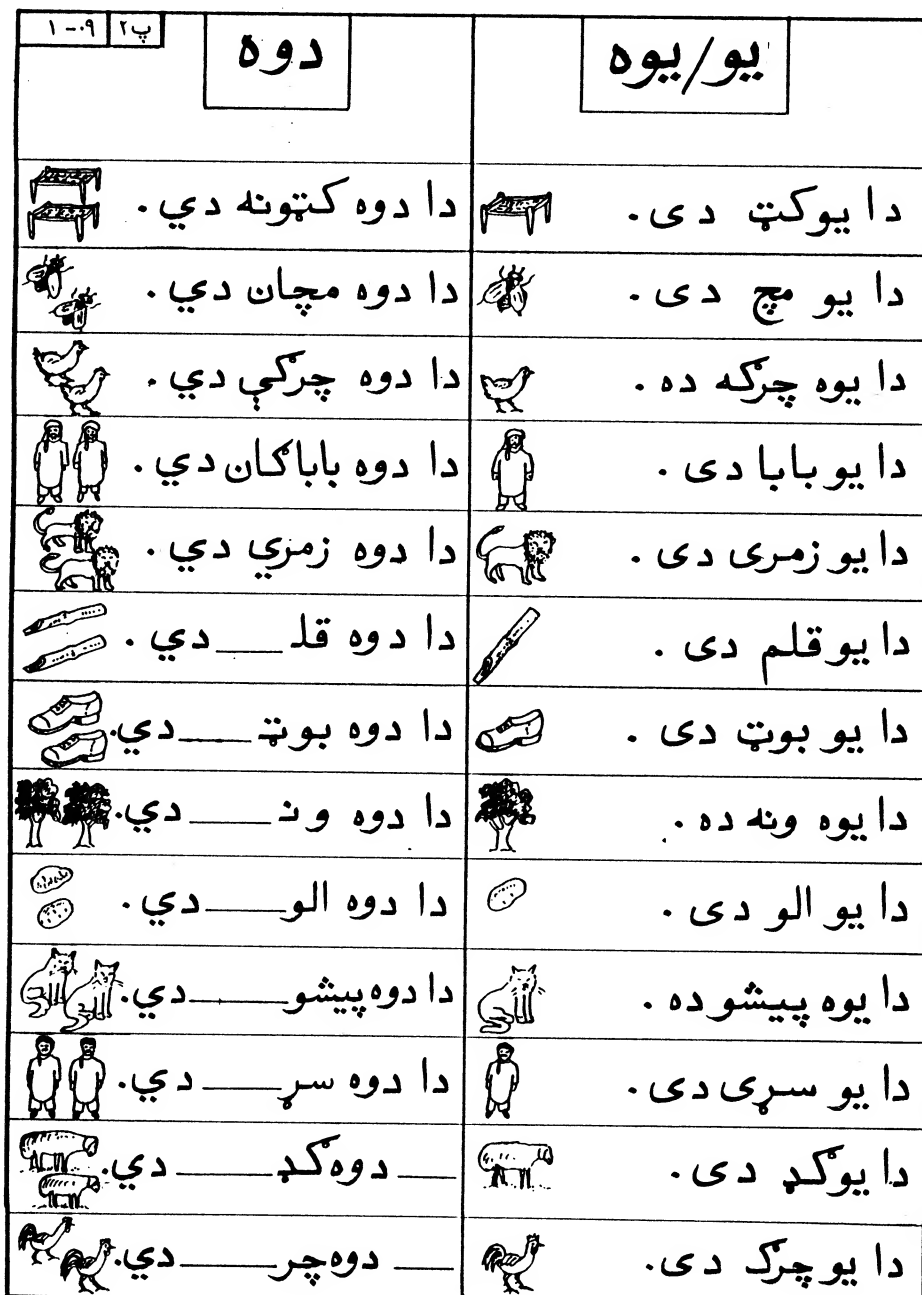 یو/یوه
دوه
پ۲ ۰۹-۱
دا یوکټ دی.
دا دوه کټونه دي.
دا یو مچ دی.
دا دوه مچان دي.
دا یوه چرګه ده.
دا دوه چرګې دي.
دا یو بابا دی.
دا دوه باباګان دي.
دا یو زمری دی.
دا دوه زمري دي.
دا یو قلم دی.
دا دوه قلـ____دي.
دا یو بوټ دی.
دا دوه بوټـ____دي.
دا یوه ونه ده.
دا دوه ونـ____دي.
دا یو الو دی.
دا دوه الو____دي.
دا یوه پیشو ده.
دا دوه پیشو____دي.
دا یو سړی دی.
دا دوه سړ____دي.
دا یوګډ دی.
____ دوه ګډ____دي.
دا یو چرګ دی.
____ دوه چر____دي.